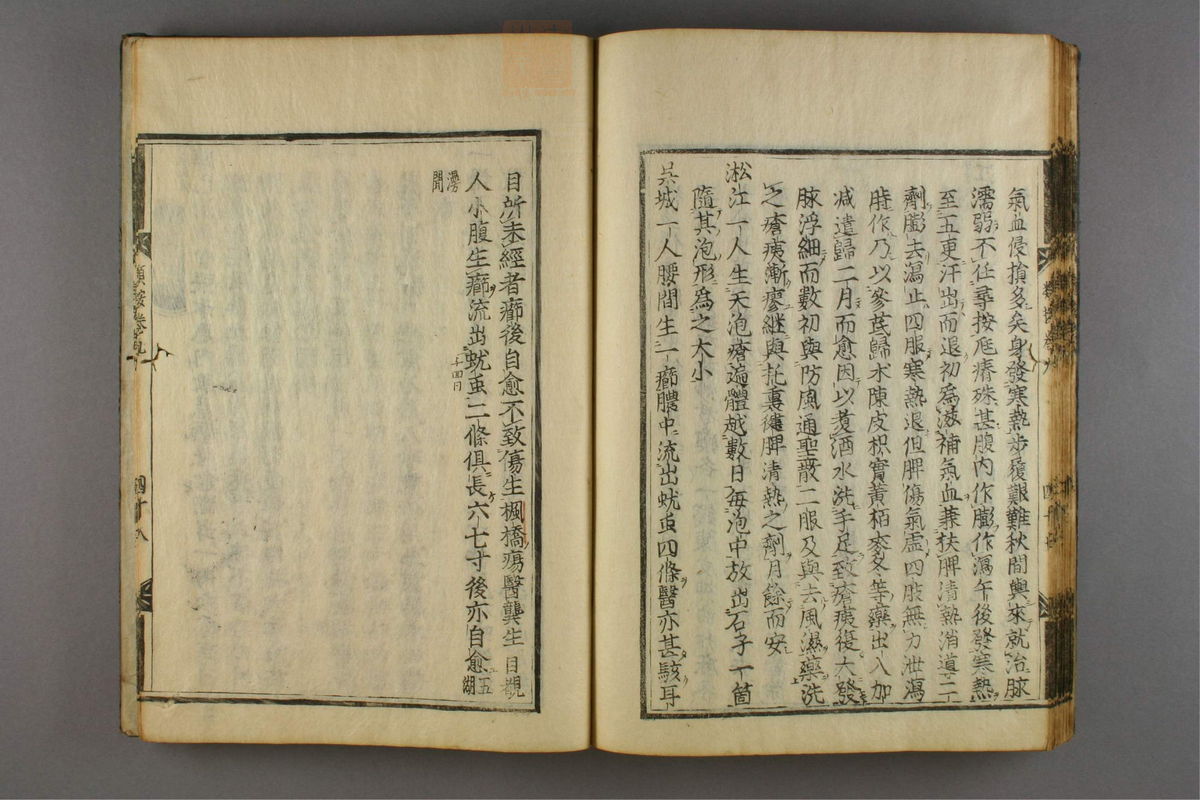 氣血侵損多矣身發寒熱步履艱難秋間輿來就治脉
濡弱不任尋按尫瘠殊甚腹內作膨作瀉午後發寒熱
至五更汗出而退初爲滋補氣血兼扶脾清熱消導二
劑膨去瀉止四服寒熱退但脾傷氣虛四肢無力泄瀉
時作乃以參芪歸朮陳皮枳實黃栢麥冬等藥出入加
减遣歸二月而愈因以煑酒水洗手足致瘡痍復大發
脉浮細而數初與防風通聖散二服及與去風濕藥洗
之瘡痍漸瘳繼與托裏健脾清熱之劑月餘而安
淞江一人生天泡瘡遍體越數日每泡中放出石子一箇
隨其泡形爲之大小
吳城一人腰間生一癤膿中流出蚘虫四條醫亦甚駭耳
目所未經者癤後自愈不致傷生楓橋瘍醫龔生目覩
人小腹生癤流出蚘虫二條俱長六七寸後亦自愈五湖
漫聞
類按卷
四十八